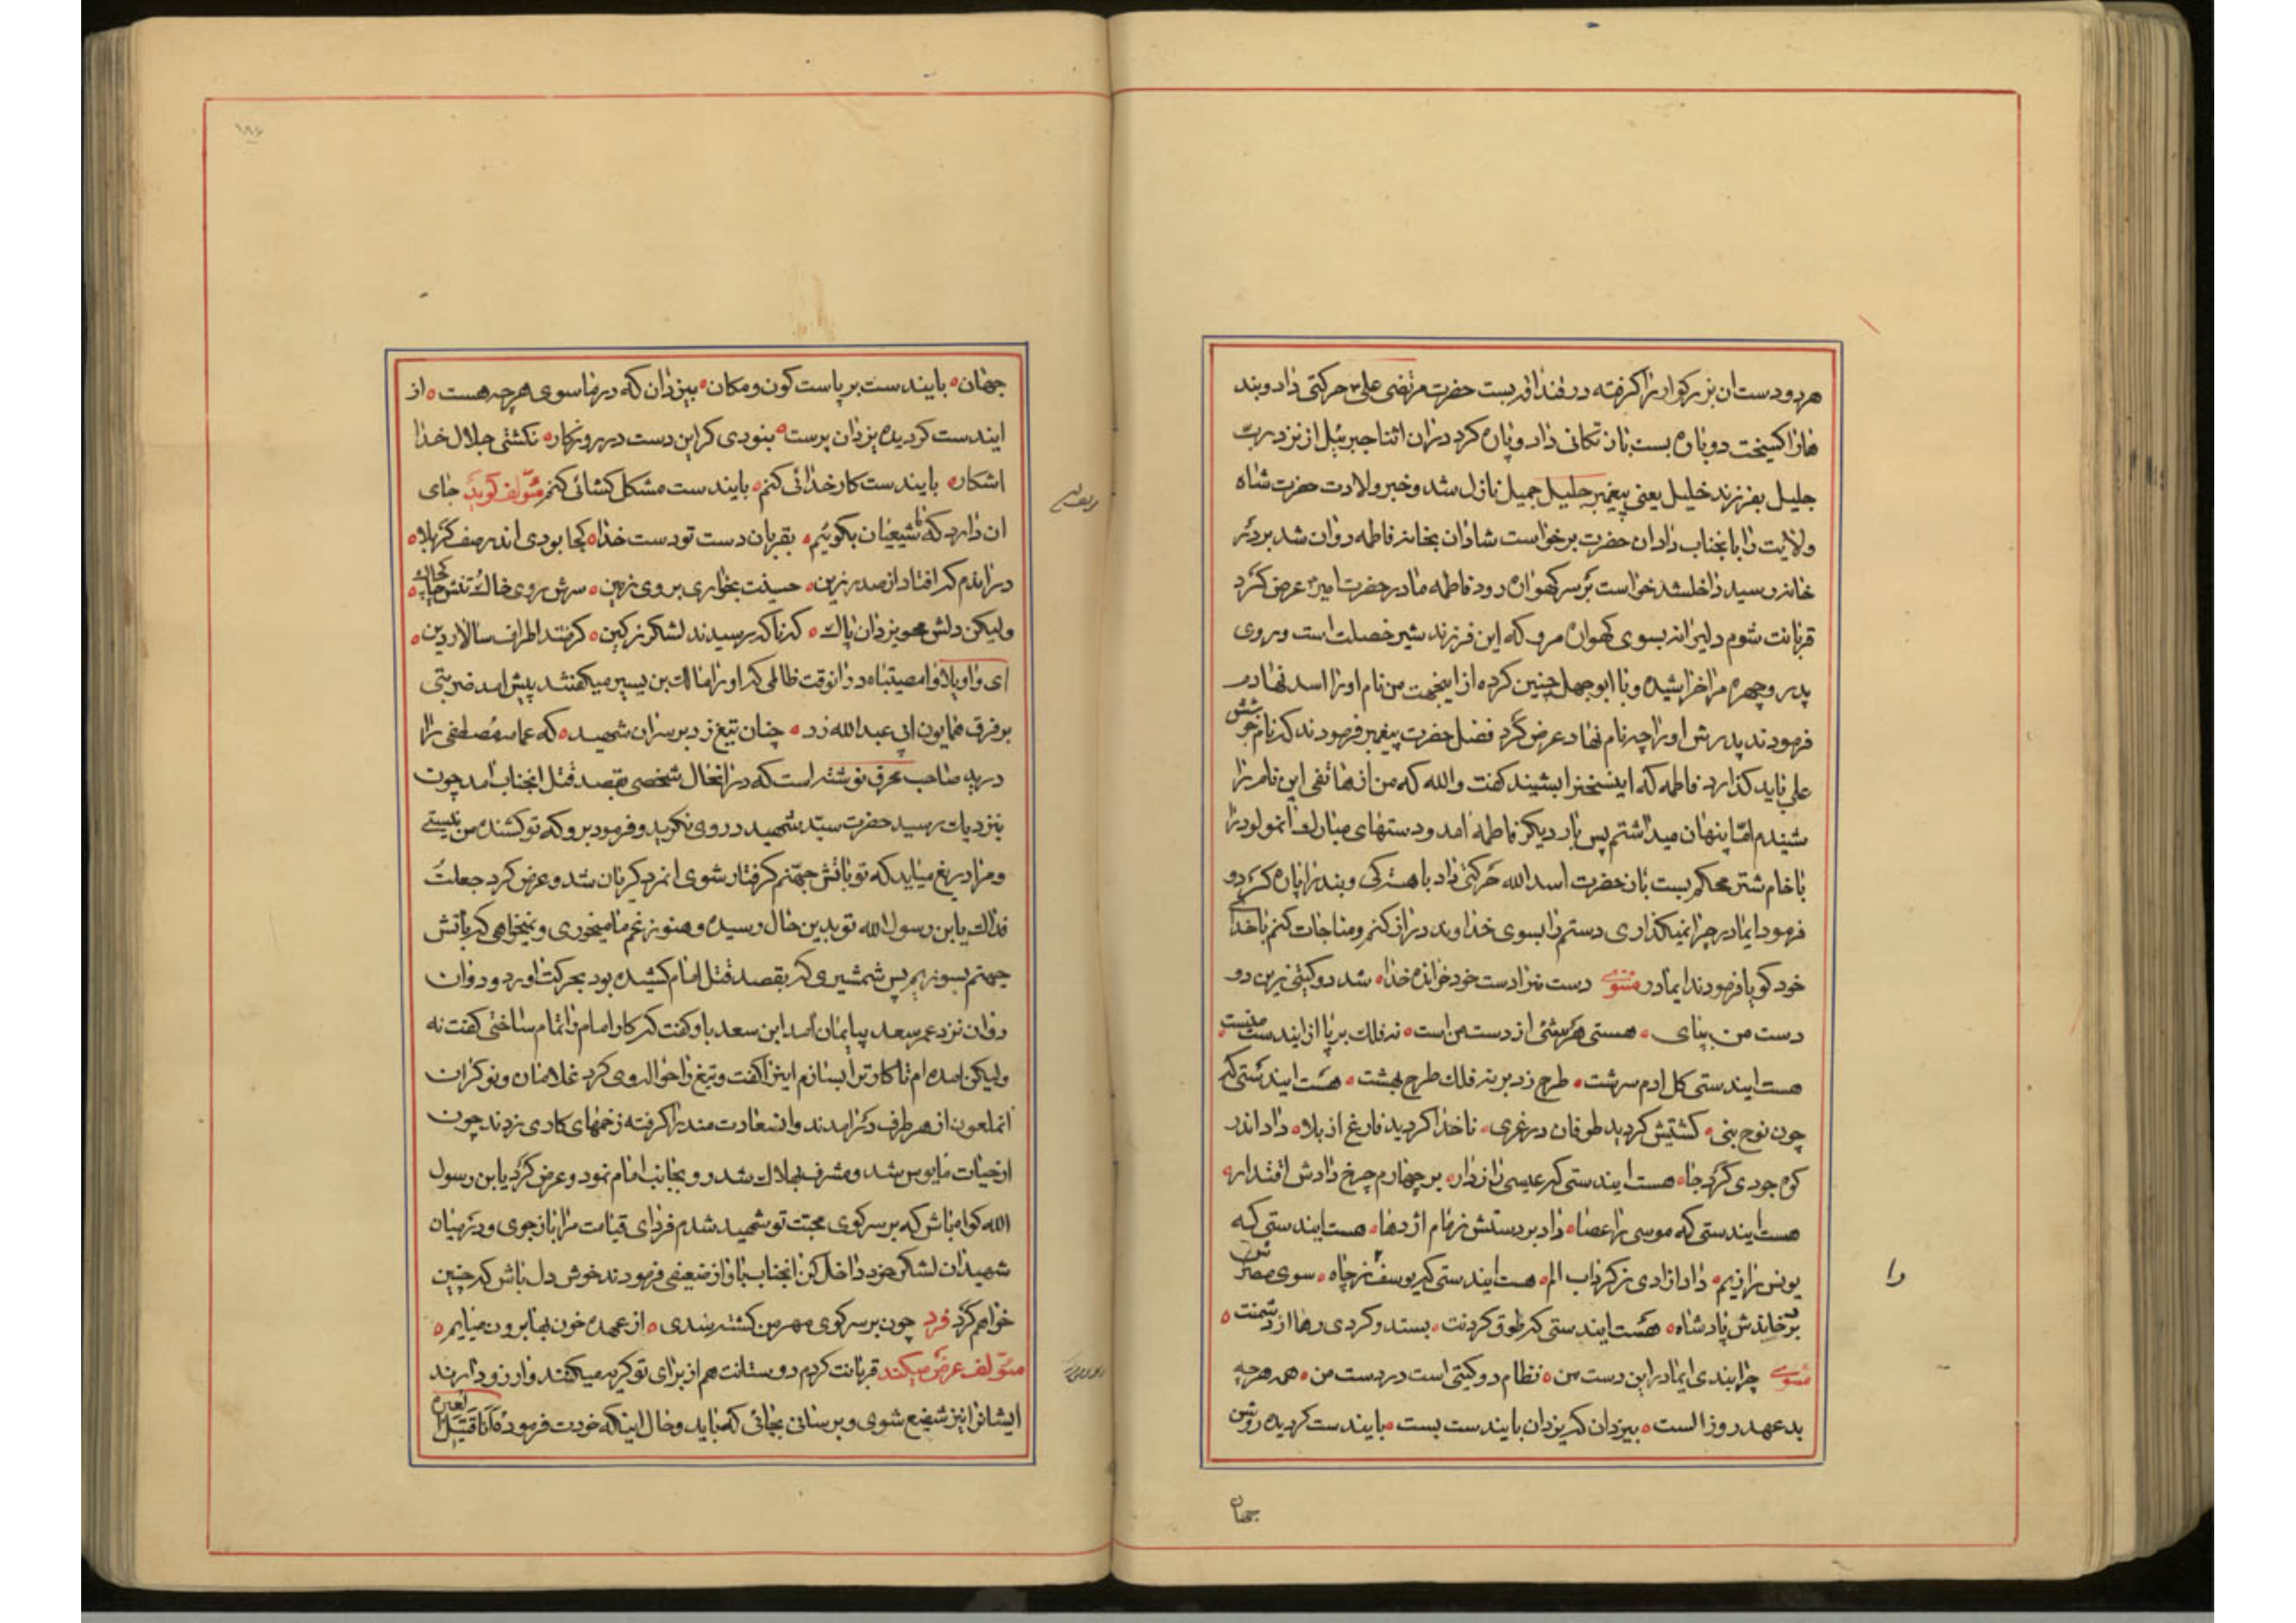 هر دو دست ان بزرکوار را کرفته در قنداقه بست حضرت مرتضی علی ع حرکتی داد و بند
ها را کسیخت دوباره بست بان تکانی داد و پاره کرد در ان اثنا جبرئیل از نزد رب
جلیل بفرزند خلیل یعنی پیغمبر جلیل جمیل نازل شد و خبر ولادت حضرت شاه
ولایت را بانجناب داد ان حضرت برخواست شادان بخانه فاطمه روان شد بر در
خانه رسید داخلشد خواست بر سر کهواره رود فاطمه مادر حضرت امیر ع عرض کرد
قربانت شوم دلیرانه بسوی کهواره مرو که این فرزند شیر خصلت است و روی
پدر و چهره مرا خراشیده و با ابوجهل چنین کرده از اینجهت من نام او را اسد نهادم
فرمودند پدرش او را چه نام نهاد عرض کرد فضل حضرت پیغمبر فرمودند که نام جز
علی نباید کذارد فاطمه که اینسخنرا بشنید کفت والله که من از هاتفی این نام را
شنیدم امّا پنهان میداشتم پس بار دیکر فاطمه امد و دستهای مبارک انمولود را
با خام شتر محکم بست بان حضرت اسد الله حرکتی داد باهستکی و بند را پاره کرد و
فرمود ایمادر چرا نمیکذاری دستم را بسوی خداوند دراز کنم و مناجات کنم با خدای
خود کویا فرمودند ایمادر مثنوی دست مرا دست خود خوانده خدا ه شد دو کیتی زین دو
دست من بپای ه هستی هر شئی از دست من است ه نه فلک بر پا از ایندست منست ه
هست ایندستی کل ادم سرشت ه طرح زد بر نه فلک طرح بهشت ه هست ایندستی که
چون نوح نبی ه کشتیش کردید طوفان در غری ه ناخدا کردید فارغ از بلا ه داد اندر
کوه جودی کرد جا ه هست ایندستی که عیسی را ز دار ه بر چهارم چرخ دادش اقتدار ه
هست ایندستی که موسی را عصا ه داد بر دستش زمام اژدها ه هست ایندستی که
یونس را ز یم ه داد ازادی ز کرداب الم ه هست ایندستی که یوسف را ز چاه ه سوی مصرش
بر خاندش پادشاه ه هست ایندستی که طوق کردنت ه بستد و کردی رها از دشمنت ه
مثنوی چرا بندی ایمادر این دست من ه نظام دو کیتی است در دست من ه همه هرچه
بد عهد روز الست ه بیزدان که یزدان بایندست بست ه بایندست کردیده روشن
جهان
را
جهان ه بایندست بر پاست کون و مکان ه بیزدان که در ماسوی هرچه هست ه از
ایندست کردیده یزدان پرست ه بنودی کر این دست در روزکار ه نکشتی جلال خدا
اشکار ه بایندست کار خدائی کنم ه بایندست مشکل کشائی کنم مؤلف کوید جای
ان دارد که ما شیعیان بکوئیم ه بقربان دست تو دست خدا ه کجا بودی اندر صف کربلا ه
در اندم که افتاد از صدر زین ه حسینت بخواری بروی زمین ه سرش روی خاک و تنش چاک چاک ه
ولیکن دلش محو یزدان پاک ه که ناکه رسیدند لشکر ز کین ه کرفتند اطراف سالار دین ه
ای واویلا وا مصیبتاه در انوقت ظالمی که او را مالک بن یسیر میکفتند پیش امد ضربتی
بر فرق همایون ابی عبدالله زد ه چنان تیغ زد بر سر ان شهید ه که عمامه مصطفی را
درید صاحب محرق نوشته است که در انحال شخصی بقصد قتل انجناب امد چون
بنزدیک رسید حضرت سیّد شهید در روی نکرید و فرمود برو که تو کشنده من نیستی
و مرا دریغ میاید که تو باتش جهنّم کرفتار شوی انمرد کریان شد و عرض کرد جعلتُ
فداک یابن رسول الله تو بدین حال رسیده و هنوز غم ما میخوری و نمیخواهی که باتش
جهنم بسوزیم پس شمشیری که بقصد قتل امام کشیده بود بحرکت اورد و دوان
دوان نزد عمر سعد بیایمان امد ابن سعد باو کفت که کار امام را تمام ساختی کفت نه
ولیکن امده ام تا کار ترا بسازم اینرا کفت و تیغ را حواله وی کرد غلامان و نوکران
انملعون از هر طرف در امدند و انسعادت مند را کرفته زخمهای کاری زدند چون
از حیات مایوس شد و مشرف بهلاک شد رو بجانب امام نمود و عرض کرد یابن رسول
الله کواه باش که بر سر کوی محبّت تو شهید شدم فردای قیامت مرا باز جوی و در میان
شهیدان لشکر خود داخل کن انجناب باواز ضعیفی فرمودند خوش دل باش که چنین
خواهم کرد فرد چون بر سر کوی مهر من کشته شدی ه از عهده خون بها برون میایم ه
مؤلف عرض میکند قربانت کردم دوستانت هم از برای تو کریه میکنند و ارزو دارند
ایشانرا نیز شفیع شوی و برسانی بجائی که باید و حال اینکه خودت فرموده انا قتیل العبره